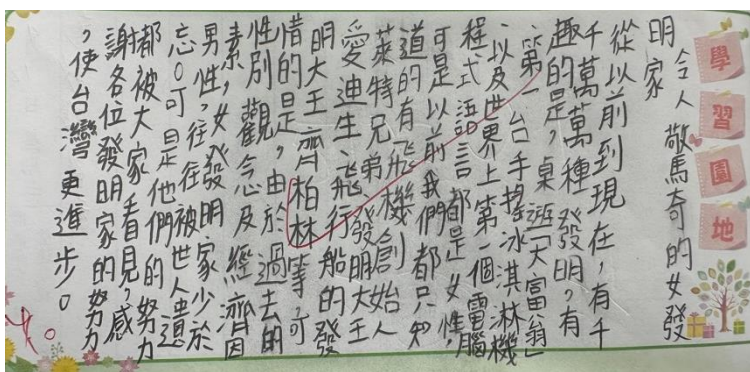 學習園地
令人驚奇的女發
明家
從以前到現在,有千
千萬萬種發明,有
趣的是,桌遊「大富翁」
、第一台手搖冰淇淋機
、以及世界上第一個電腦
程式語言都是女性,
可是以前我們都只知
道的有飛機創始人
萊特兄弟、發明大王
愛迪生、飛行船的發
明大王齊柏林等可
惜的是,由於過去的
性別觀念及經濟因
素,女發明家少於
男性,往往被世人遺
忘。可是他們的努力
都被大家看見,感
謝各位發明家的努力
,使台灣更進步。